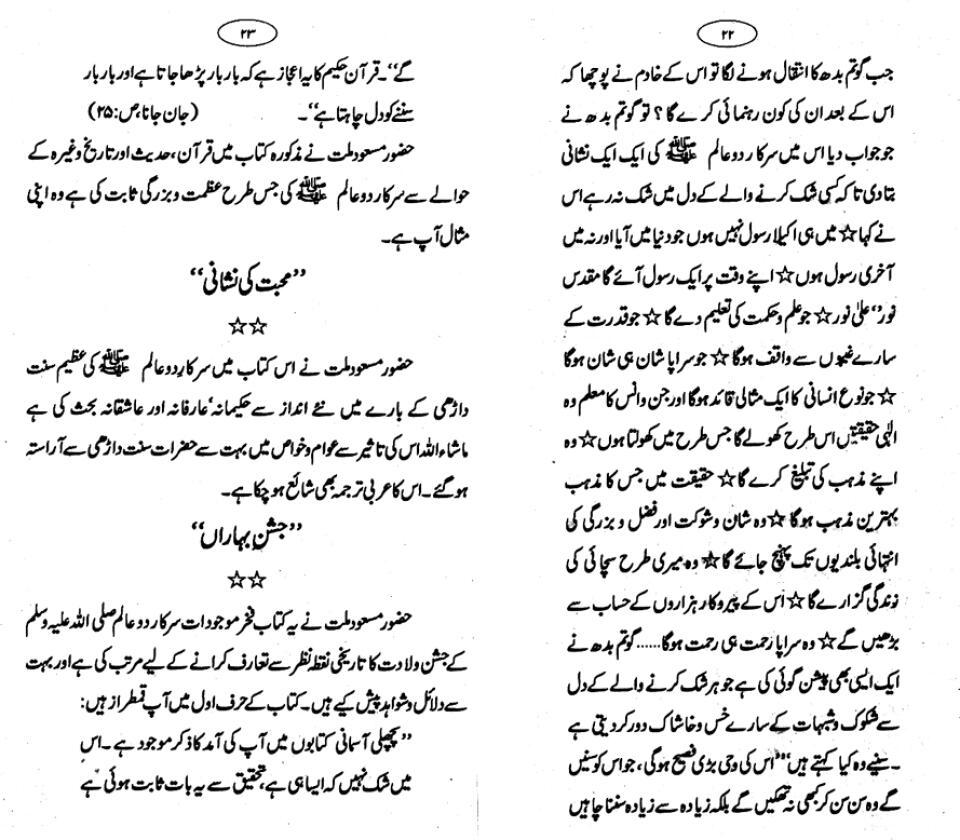 ۲۲
جب گوتم بدھ کا انتقال ہونے لگا تو اس کے خادم نے پوچھا کہ
اس کے بعد ان کی کون رہنمائی کرے گا؟ تو گوتم بدھ نے
جو جواب دیا اس میں سرکار دو عالم ﷺ کی ایک ایک نشانی
بتا دی تاکہ کسی شک کرنے والے کے دل میں شک نہ رہے اس
نے کہا ☆ میں ہی اکیلا رسول نہیں ہوں جو دنیا میں آیا اور نہ میں
آخری رسول ہوں ☆ اپنے وقت پر ایک رسول آئے گا مقدس
نور‘‘ علیٰ نور ☆ جو علم و حکمت کی تعلیم دے گا ☆ جو قدرت کے
سارے غیبوں سے واقف ہوگا ☆ جو سراپا شان ہی شان ہوگا
☆ جو نوع انسانی کا ایک مثالی قائد ہوگا اور جن وانس کا معلم وہ
الٰہی حقیقتیں اس طرح کھولے گا جس طرح میں کھولتا ہوں ☆ وہ
اپنے مذہب کی تبلیغ کرے گا ☆ حقیقت میں جس کا مذہب
بہترین مذہب ہوگا ☆ وہ شان و شوکت اور فضل و بزرگی کی
انتہائی بلندیوں تک پہنچ جائے گا ☆ وہ میری طرح سچائی کی
زندگی گزارے گا ☆ اس کے پیروکار ہزاروں کے حساب سے
بڑھیں گے ☆ وہ سراپا رحمت ہی رحمت ہوگا ...... گوتم بدھ نے
ایک ایسی بھی پیشن گوئی کی ہے جو ہر شک کرنے والے کے دل
سے شکوک و شبہات کے سارے خس و خاشاک دور کر دیتی ہے
۔ سنیے وہ کیا کہتے ہیں ’’’’اس کی وحی بڑی فصیح ہوگی، جو اس کو سنیں
گے وہ سن سن کر کبھی نہ تھکیں گے بلکہ زیادہ سے زیادہ سننا چاہیں
۲۳
گے‘‘۔ قرآن حکیم کا یہ اعجاز ہے کہ بار بار پڑھا جاتا ہے اور بار بار
سننے کو دل چاہتا ہے‘‘۔ (جان جاناں، ص:۲۵)
حضور مسعود ملت نے مذکورہ کتاب میں قرآن، حدیث اور تاریخ وغیرہ کے
حوالے سے سرکار دو عالم ﷺ کی جس طرح عظمت و بزرگی ثابت کی ہے وہ اپنی
مثال آپ ہے۔
’’محبت کی نشانی‘‘
☆☆
حضور مسعود ملت نے اس کتاب میں سرکارِ دو عالم ﷺ کی عظیم سنت
داڑھی کے بارے میں نئے انداز سے حکیمانہ‘ عارفانہ اور عاشقانہ بحث کی ہے
ماشاء اللہ اس کی تاثیر سے عوام و خواص میں بہت سے حضرات سنت داڑھی سے آراستہ
ہو گئے۔ اس کا عربی ترجمہ بھی شائع ہو چکا ہے۔
’’جشنِ بہاراں‘‘
☆☆
حضور مسعود ملت نے یہ کتاب فخر موجودات سرکار دو عالم صلی اللہ علیہ وسلم
کے جشن ولادت کا تاریخی نقطہ نظر سے تعارف کرانے کے لیے مرتب کی ہے اور بہت
سے دلائل و شواہد پیش کیے ہیں۔ کتاب کے حرف اول میں آپ رقمطراز ہیں:
’’پچھلی آسمانی کتابوں میں آپ کی آمد کا ذکر موجود ہے۔ اس
میں شک نہیں کہ ایسا ہی ہے، تحقیق سے یہ بات ثابت ہوئی ہے